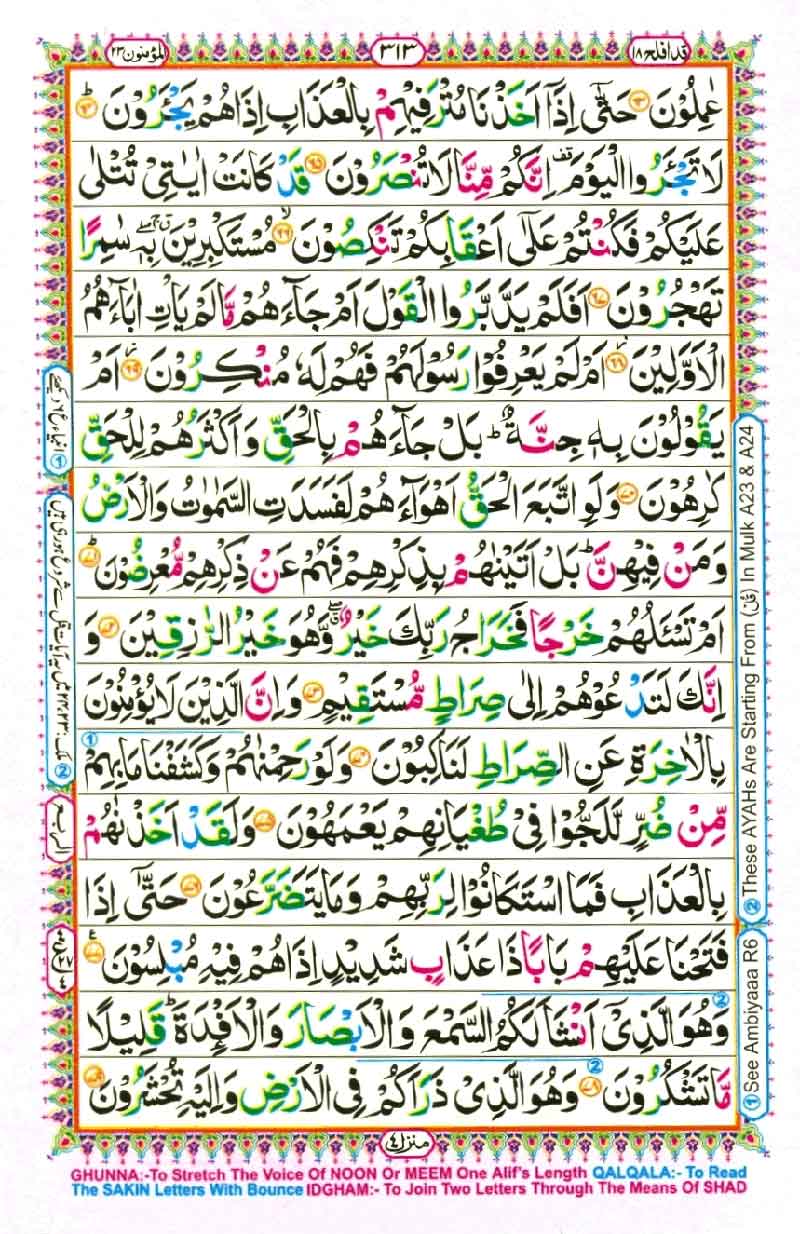 المؤمنون ٢٣
٣١٣
قد افلح ١٨
عٰمِلُوْنَ ﴿٦٣﴾ حَتّٰۤى اِذَاۤ اَخَذْنَا مُتْرَفِيْهِمْ بِالْعَذَابِ اِذَا هُمْ يَجْــَٔرُوْنَ ؕ﴿٦٤﴾
لَا تَجْــَٔرُوا الْيَوْمَ ۫ اِنَّكُمْ مِّنَّا لَا تُنْصَرُوْنَ ﴿٦٥﴾ قَدْ كَانَتْ اٰيٰتِيْ تُتْلٰى
عَلَيْكُمْ فَكُنْتُمْ عَلٰۤى اَعْقَابِكُمْ تَنْكِصُوْنَ ۙ﴿٦٦﴾ مُسْتَكْبِرِيْنَ ۖۗ بِهٖ سٰمِرًا
تَهْجُرُوْنَ ﴿٦٧﴾ اَفَلَمْ يَدَّبَّرُوا الْقَوْلَ اَمْ جَآءَهُمْ مَّا لَمْ يَاْتِ اٰبَآءَهُمُ
الْاَوَّلِيْنَ ؗ﴿٦٨﴾ اَمْ لَمْ يَعْرِفُوْا رَسُوْلَهُمْ فَهُمْ لَهٗ مُنْكِرُوْنَ ؗ﴿٦٩﴾ اَمْ
يَقُوْلُوْنَ بِهٖ جِنَّةٌ ؕ بَلْ جَآءَهُمْ بِالْحَقِّ وَاَكْثَرُهُمْ لِلْحَقِّ
كٰرِهُوْنَ ﴿٧٠﴾ وَلَوِ اتَّبَعَ الْحَقُّ اَهْوَآءَهُمْ لَفَسَدَتِ السَّمٰوٰتُ وَالْاَرْضُ
وَمَنْ فِيْهِنَّ ؕ بَلْ اَتَيْنٰهُمْ بِذِكْرِهِمْ فَهُمْ عَنْ ذِكْرِهِمْ مُّعْرِضُوْنَ ؕ﴿٧١﴾
اَمْ تَسْــَٔلُهُمْ خَرْجًا فَخَرَاجُ رَبِّكَ خَيْرٌ ۖۗ وَّهُوَ خَيْرُ الرّٰزِقِيْنَ ﴿٧٢﴾ وَ
اِنَّكَ لَتَدْعُوْهُمْ اِلٰى صِرَاطٍ مُّسْتَقِيْمٍ ﴿٧٣﴾ وَاِنَّ الَّذِيْنَ لَا يُؤْمِنُوْنَ
بِالْاٰخِرَةِ عَنِ الصِّرَاطِ لَنٰكِبُوْنَ ﴿٧٤﴾ وَلَوْ رَحِمْنٰهُمْ وَكَشَفْنَا مَا بِهِمْ
مِّنْ ضُرٍّ لَّلَجُّوْا فِيْ طُغْيَانِهِمْ يَعْمَهُوْنَ ﴿٧٥﴾ وَلَقَدْ اَخَذْنٰهُمْ
بِالْعَذَابِ فَمَا اسْتَكَانُوْا لِرَبِّهِمْ وَمَا يَتَضَرَّعُوْنَ ﴿٧٦﴾ حَتّٰۤى اِذَا
فَتَحْنَا عَلَيْهِمْ بَابًا ذَا عَذَابٍ شَدِيْدٍ اِذَا هُمْ فِيْهِ مُبْلِسُوْنَ ﴿٧٧﴾
وَهُوَ الَّذِيْۤ اَنْشَاَ لَكُمُ السَّمْعَ وَالْاَبْصَارَ وَالْاَفْـِٕدَةَ ؕ قَلِيْلًا
مَّا تَشْكُرُوْنَ ﴿٧٨﴾ وَهُوَ الَّذِيْ ذَرَاَكُمْ فِى الْاَرْضِ وَاِلَيْهِ تُحْشَرُوْنَ ﴿٧٩﴾
منزل ٤
② These AYAHs Are Starting From (قُلْ) In Mulk A23 & A24
① See Ambiyaaa R6
GHUNNA:-To Stretch The Voice Of NOON Or MEEM One Alif's Length QALQALA:- To Read
The SAKIN Letters With Bounce IDGHAM:- To Join Two Letters Through The Means Of SHAD